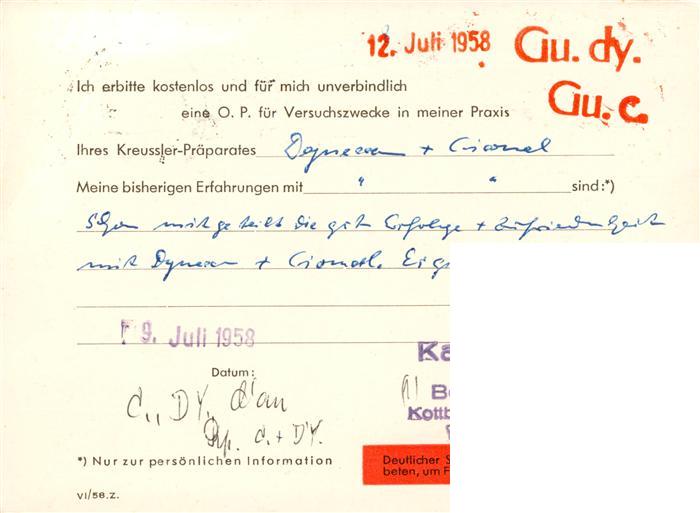 12. Juli 1958 Gu. dy.
Gu. c.
Ich erbitte kostenlos und für mich unverbindlich
eine O. P. für Versuchszwecke in meiner Praxis
Ihres Kreussler-Präparates Dynexan + Cional
Meine bisherigen Erfahrungen mit " " sind:*)
Schon mitgeteilt die gute Erfolge + Zufriedenheit
mit Dynexan +
9. Juli 1958
Ka
Datum:
Be
C., DY,
Kottb
Rp. C. + DY.
*) Nur zur persönlichen Information
Deutlicher S
beten, um F
VI/58.Z.